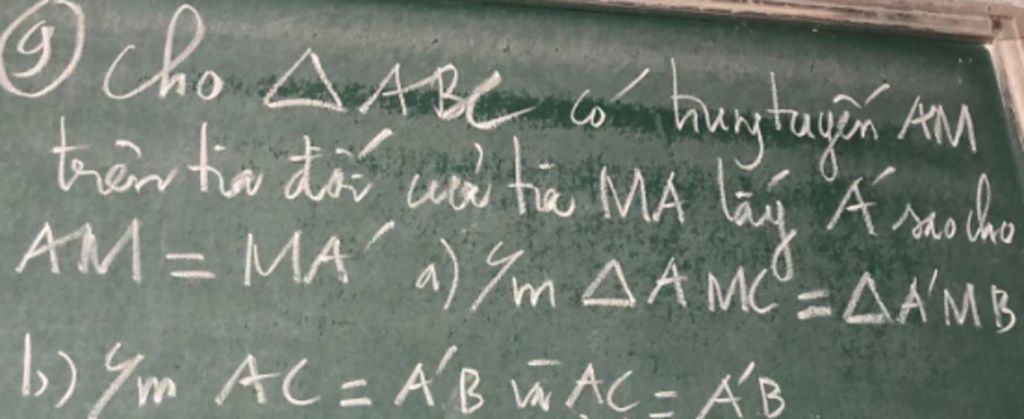 ⑨ Cho △ABC có trung tuyến AM
trên tia đối của tia MA lấy A' sao cho
AM = MA' a) C/m △AMC = △A'MB
b) C/m AC = A'B và AC = A'B